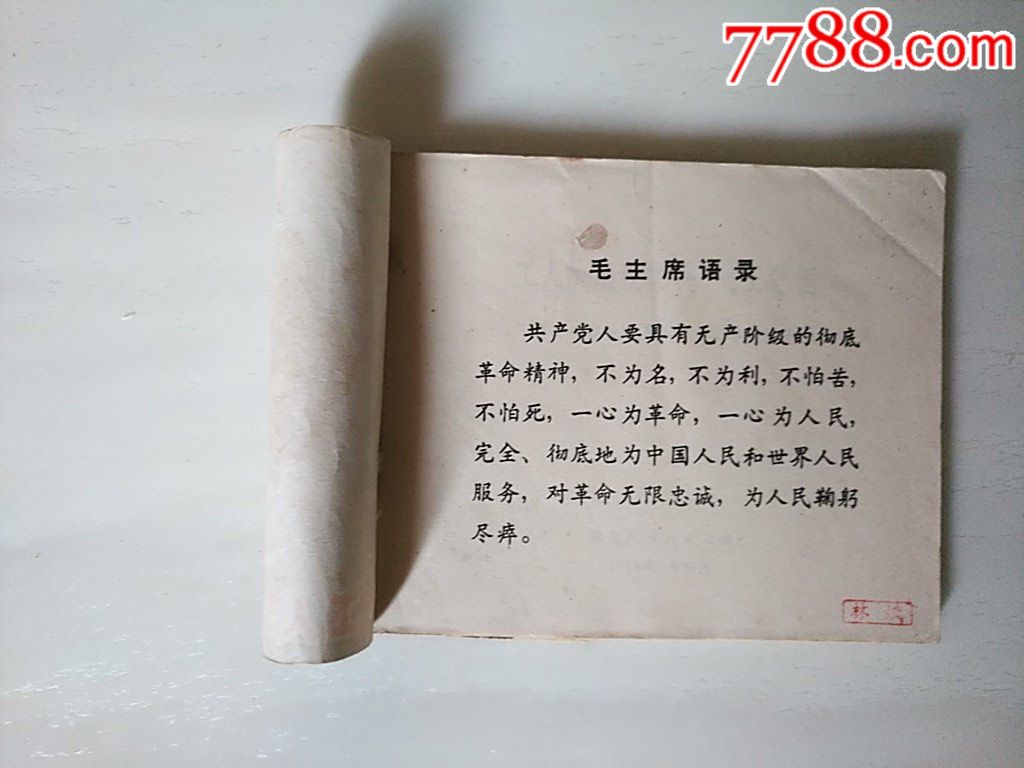 7788.com
毛主席语录
共产党人要具有无产阶级的彻底
革命精神，不为名，不为利，不怕苦，
不怕死，一心为革命，一心为人民，
完全、彻底地为中国人民和世界人民
服务，对革命无限忠诚，为人民鞠躬
尽瘁。
林